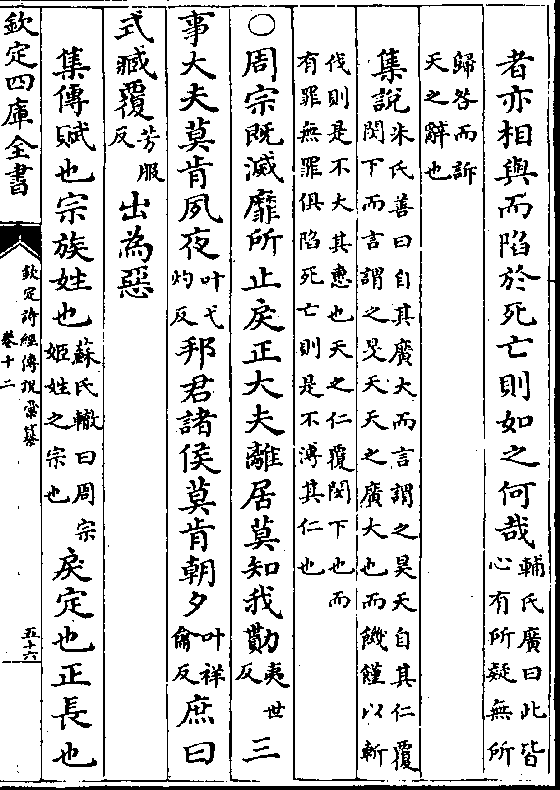 者亦相與而陷於死亡則如之何哉輔氏廣曰此皆
心有所疑無所
歸咎而訴
天之辭也
集說朱氏善曰自其廣大而言謂之昊天自其仁覆
閔下而言謂之旻天天之廣大也而饑饉以斬
伐則是不大其惠也天之仁覆閔下也而
有罪無罪俱陷死亡則是不溥其仁也
○周宗既滅靡所止戾正大夫離居莫知我勩夷世反三
事大夫莫肯夙夜叶弋灼反邦君諸侯莫肯朝夕叶祥龠反庶曰
式臧覆芳服反出為惡
集傳賦也宗族姓也蘇氏轍曰周宗姬姓之宗也戾定也正長也
欽定四庫全書
欽定詩經傳說彙纂
卷十二
五十六